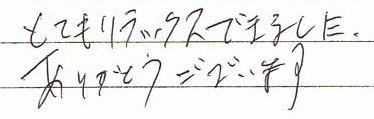 とてもリラックスできました.
ありがとうございます